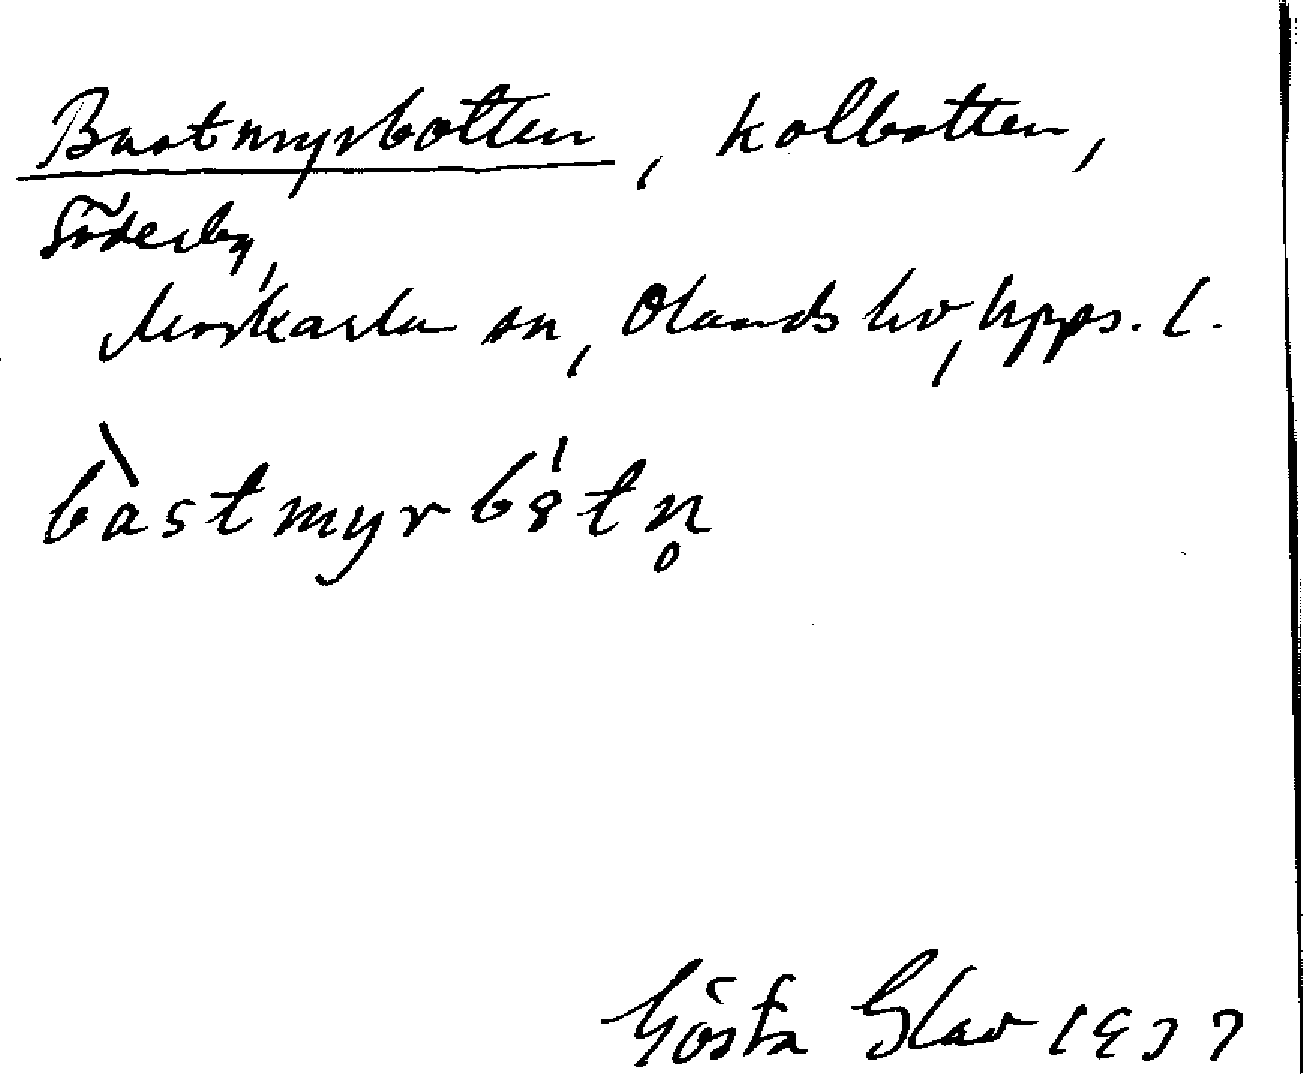 Bastmyrbotten, kolbotten,
Söderby,
Morkarla sn, Olands hd, Upps. l.
bàstmyrb8́tn̥
Gösta Glav 1937